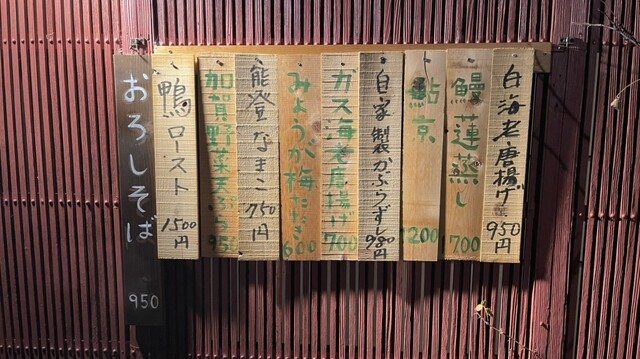 白海老唐揚げ 950円
鰻蓮蒸し 700
鮎京 1200
自家製かぶらずし 980円
ガス海老唐揚げ 700
みょうが梅たたき 600
能登なまこ 750円
加賀野菜天ぷら 950
鴨ロースト 1500円
おろしそば 950